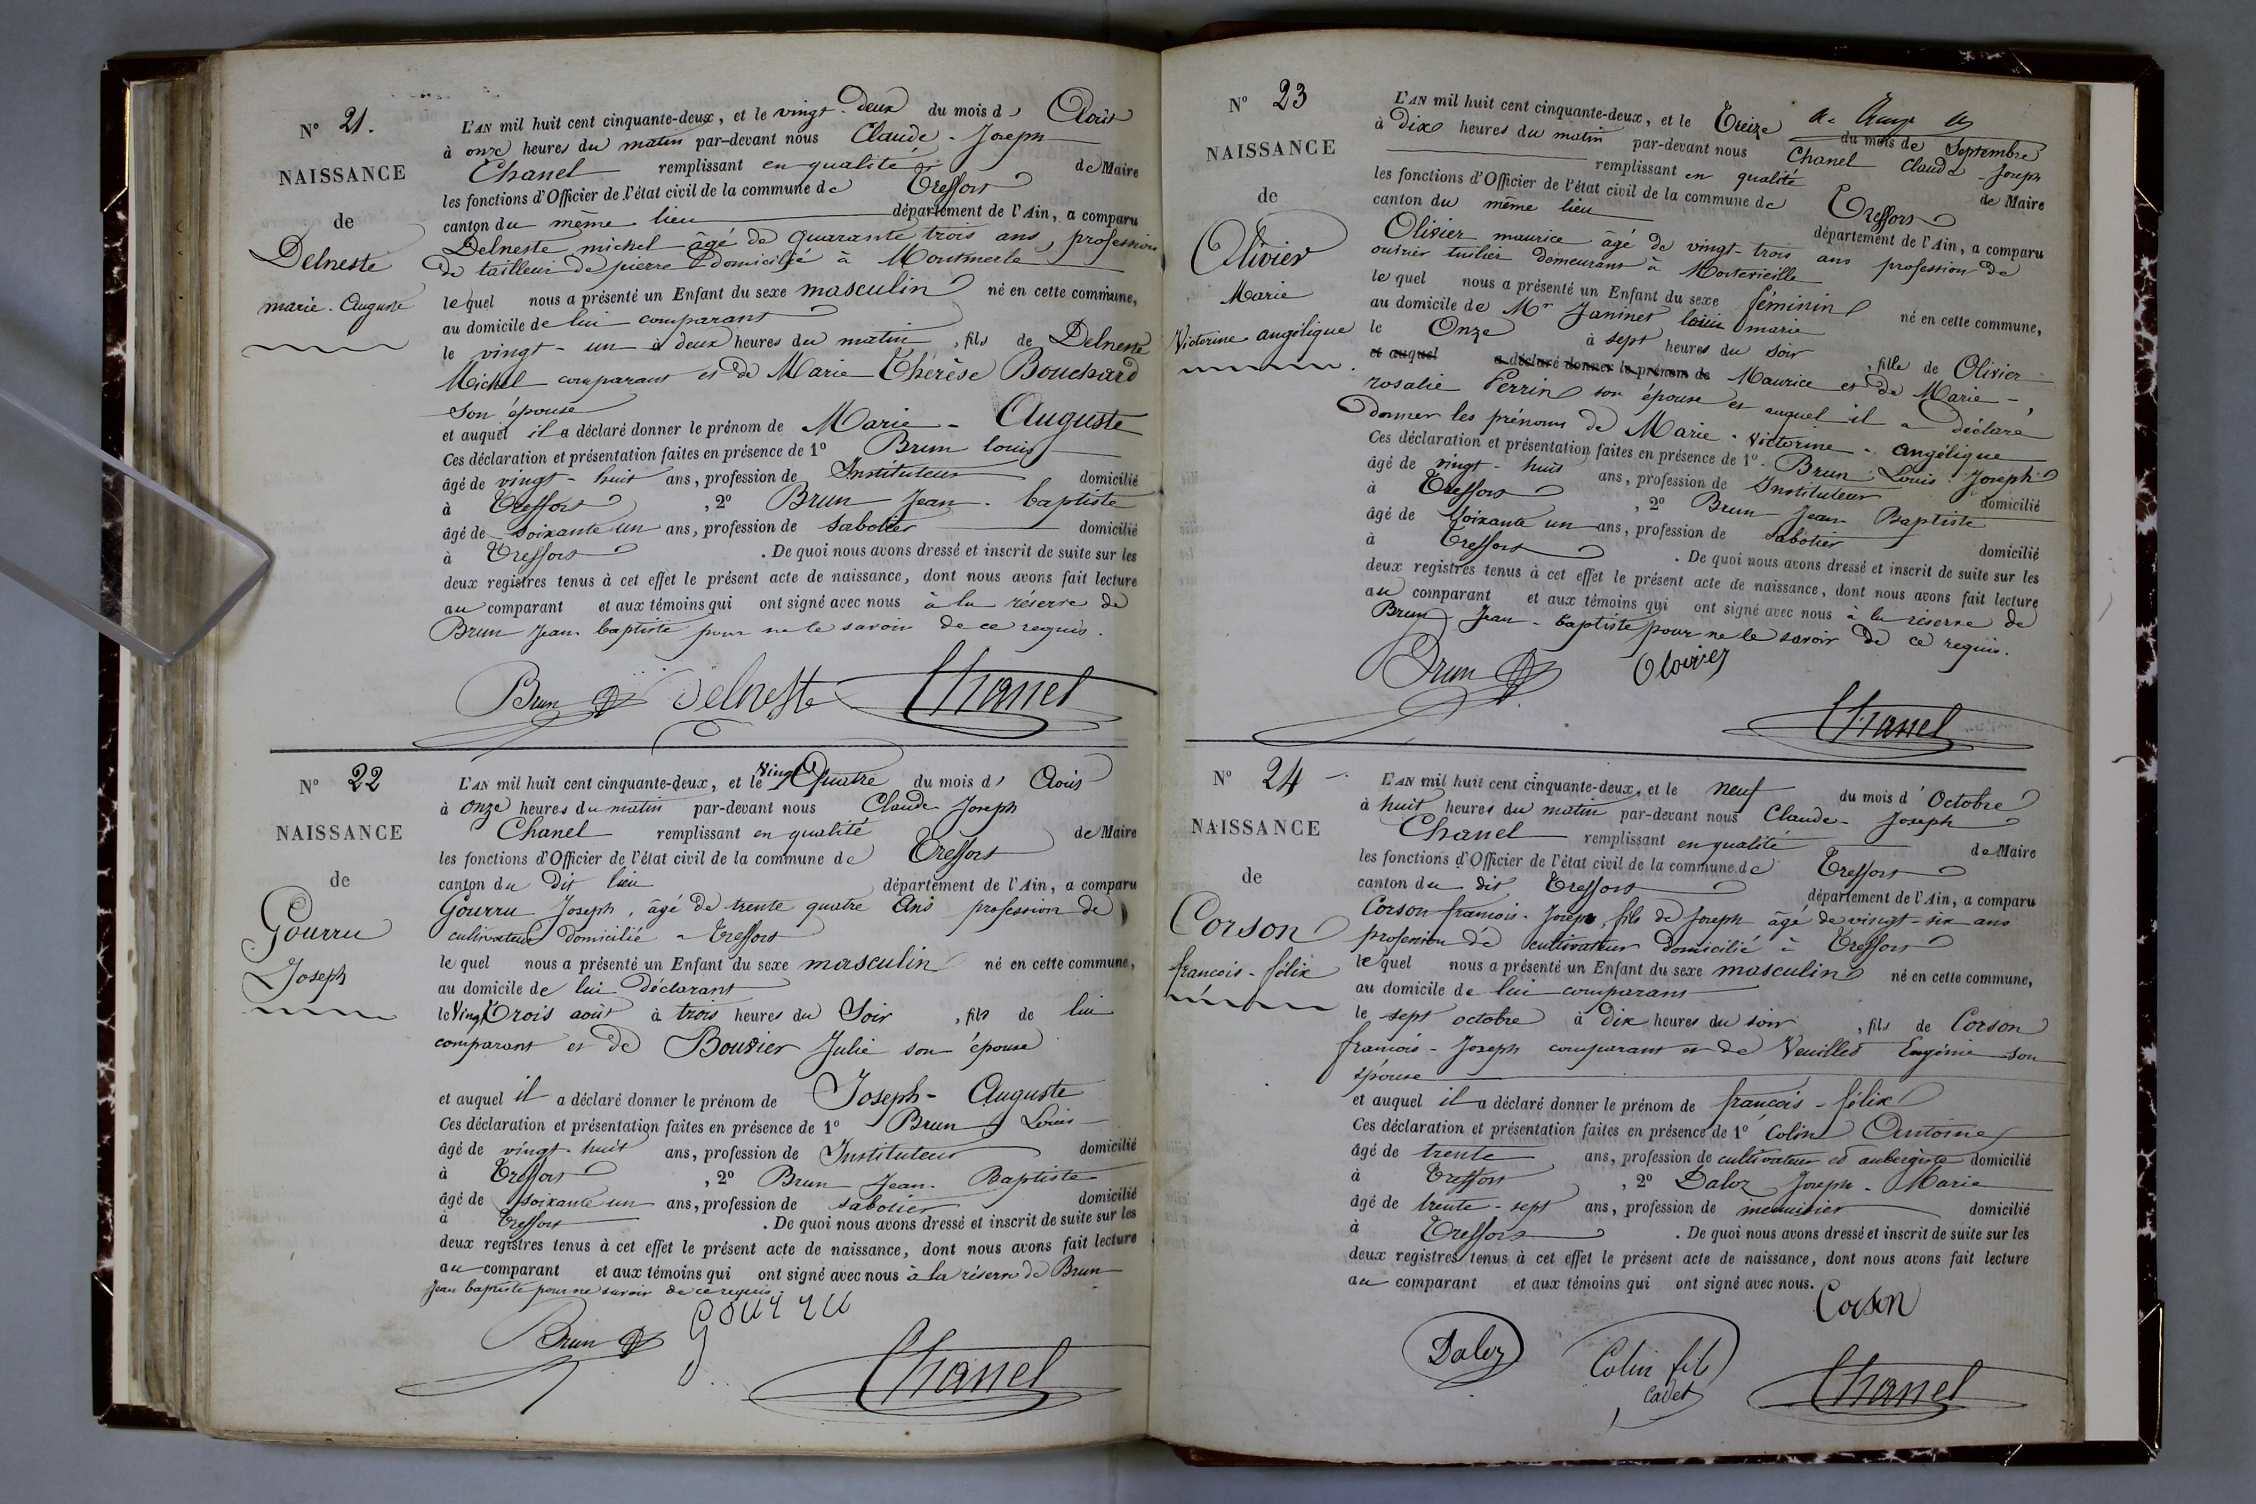 N° 21.
NAISSANCE
de
Delneste
marie. Auguste
L'AN mil huit cent cinquante-deux, et le vingt-deux du mois d' Août
à onze heures du matin par-devant nous Claude-Joseph
Chanel remplissant en qualité de Maire
les fonctions d'Officier de l'état civil de la commune de Treffort
canton du même lieu département de l'Ain, a comparu
Delneste michel âgé de quarante trois ans, profession
de tailleur de pierre domicilié à Montmerle
le quel nous a présenté un Enfant du sexe masculin né en cette commune,
au domicile de lui comparant
le vingt-un à deux heures du matin, fils de Delneste
Michel comparant et de Marie Thérèse Bouchard
son épouse
et auquel il a déclaré donner le prénom de Marie-Auguste
Ces déclaration et présentation faites en présence de 1° Brun louis
âgé de vingt-huit ans, profession de Instituteur domicilié
à Treffort, 2° Brun Jean-baptiste
âgé de soixante un ans, profession de sabotier domicilié
à Treffort. De quoi nous avons dressé et inscrit de suite sur les
deux registres tenus à cet effet le présent acte de naissance, dont nous avons fait lecture
au comparant et aux témoins qui ont signé avec nous à la réserve de
Brun Jean-baptiste pour ne le savoir de ce requis.
Brun Delneste Chanel
N° 22
NAISSANCE
de
Gourru
Joseph
L'AN mil huit cent cinquante-deux, et le vingt Quatre du mois d' Août
à onze heures du matin par-devant nous Claude Joseph
Chanel remplissant en qualité de Maire
les fonctions d'Officier de l'état civil de la commune de Treffort
canton du dit lieu département de l'Ain, a comparu
Gourru Joseph, âgé de trente quatre Ans profession de
cultivateur domicilié à Treffort
le quel nous a présenté un Enfant du sexe masculin né en cette commune,
au domicile de lui déclarant
le Vingt Trois août à trois heures du Soir, fils de lui
comparant et de Bouvier Julie son épouse
et auquel il a déclaré donner le prénom de Joseph-Auguste
Ces déclaration et présentation faites en présence de 1° Brun Louis
âgé de vingt-huit ans, profession de Instituteur domicilié
à Treffort, 2° Brun Jean-Baptiste
âgé de soixante un ans, profession de sabotier domicilié
à Treffort. De quoi nous avons dressé et inscrit de suite sur les
deux registres tenus à cet effet le présent acte de naissance, dont nous avons fait lecture
au comparant et aux témoins qui ont signé avec nous à la réserve de Brun
Jean baptiste pour ne savoir de ce requis.
Brun Gourru
Chanel
N° 23
NAISSANCE
de
Olivier
Marie
Victorine angélique
L'AN mil huit cent cinquante-deux, et le Treize du mois de Septembre
à dix heures du matin par-devant nous Chanel Claude-Joseph
remplissant en qualité de Maire
les fonctions d'Officier de l'état civil de la commune de Treffort
canton du même lieu département de l'Ain, a comparu
Olivier maurice âgé de vingt-trois ans profession de
ouvrier tuilier demeurant à Montevieille
le quel nous a présenté un Enfant du sexe féminin né en cette commune,
au domicile de Mr Janinet louis marie
le Onze à sept heures du soir, fille de Olivier
et auquel a déclaré donner le prénom de Maurice et de Marie-
rosalie Perrin son épouse et auquel il a déclaré
donner les prénoms de Marie-Victorine-angélique
Ces déclaration et présentation faites en présence de 1° Brun Louis Joseph
âgé de vingt-huit ans, profession de Instituteur domicilié
à Treffort, 2° Brun Jean Baptiste
âgé de soixante un ans, profession de sabotier domicilié
à Treffort. De quoi nous avons dressé et inscrit de suite sur les
deux registres tenus à cet effet le présent acte de naissance, dont nous avons fait lecture
au comparant et aux témoins qui ont signé avec nous à la réserve de
Brun Jean-baptiste pour ne le savoir de ce requis.
Brun
Chanel
N° 24
NAISSANCE
de
Corson
françois-félix
L'AN mil huit cent cinquante-deux, et le neuf du mois d' Octobre
à huit heures du matin par-devant nous Claude-Joseph
Chanel remplissant en qualité de Maire
les fonctions d'Officier de l'état civil de la commune de Treffort
canton du dit Treffort département de l'Ain, a comparu
Corson francois-Joseph, fils de Joseph âgé de vingt-six ans
profession de cultivateur domicilié à Treffort
le quel nous a présenté un Enfant du sexe masculin né en cette commune,
au domicile de lui comparant
le sept octobre à dix heures du soir, fils de Corson
francois-Joseph comparant et de Veuillet Eugénie son
épouse
et auquel il a déclaré donner le prénom de francois-félix
Ces déclaration et présentation faites en présence de 1° Colin Antoine
âgé de trente ans, profession de cultivateur et aubergiste domicilié
à Treffort, 2° Daloz Joseph-Marie
âgé de trente-sept ans, profession de menuisier domicilié
à Treffort. De quoi nous avons dressé et inscrit de suite sur les
deux registres tenus à cet effet le présent acte de naissance, dont nous avons fait lecture
au comparant et aux témoins qui ont signé avec nous.
Corson
Daloz Colin fils
cadet
Chanel